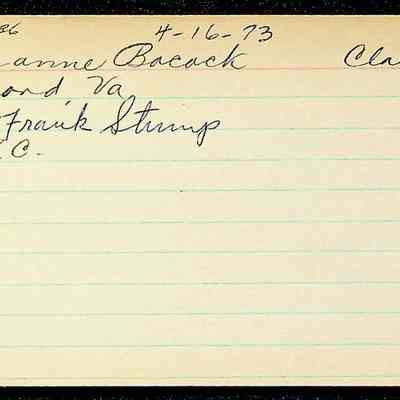 36 4-16-73
anne Bocock Cla
ond Va
Frank Stump
. C.